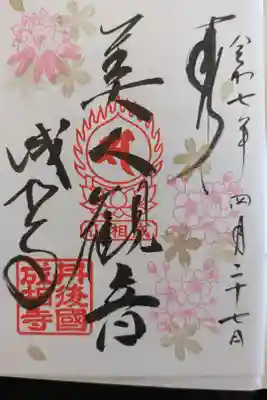 令和七年 四月二十七日
奉拝
美人観音
成相寺
成相山
丹後國
成相寺